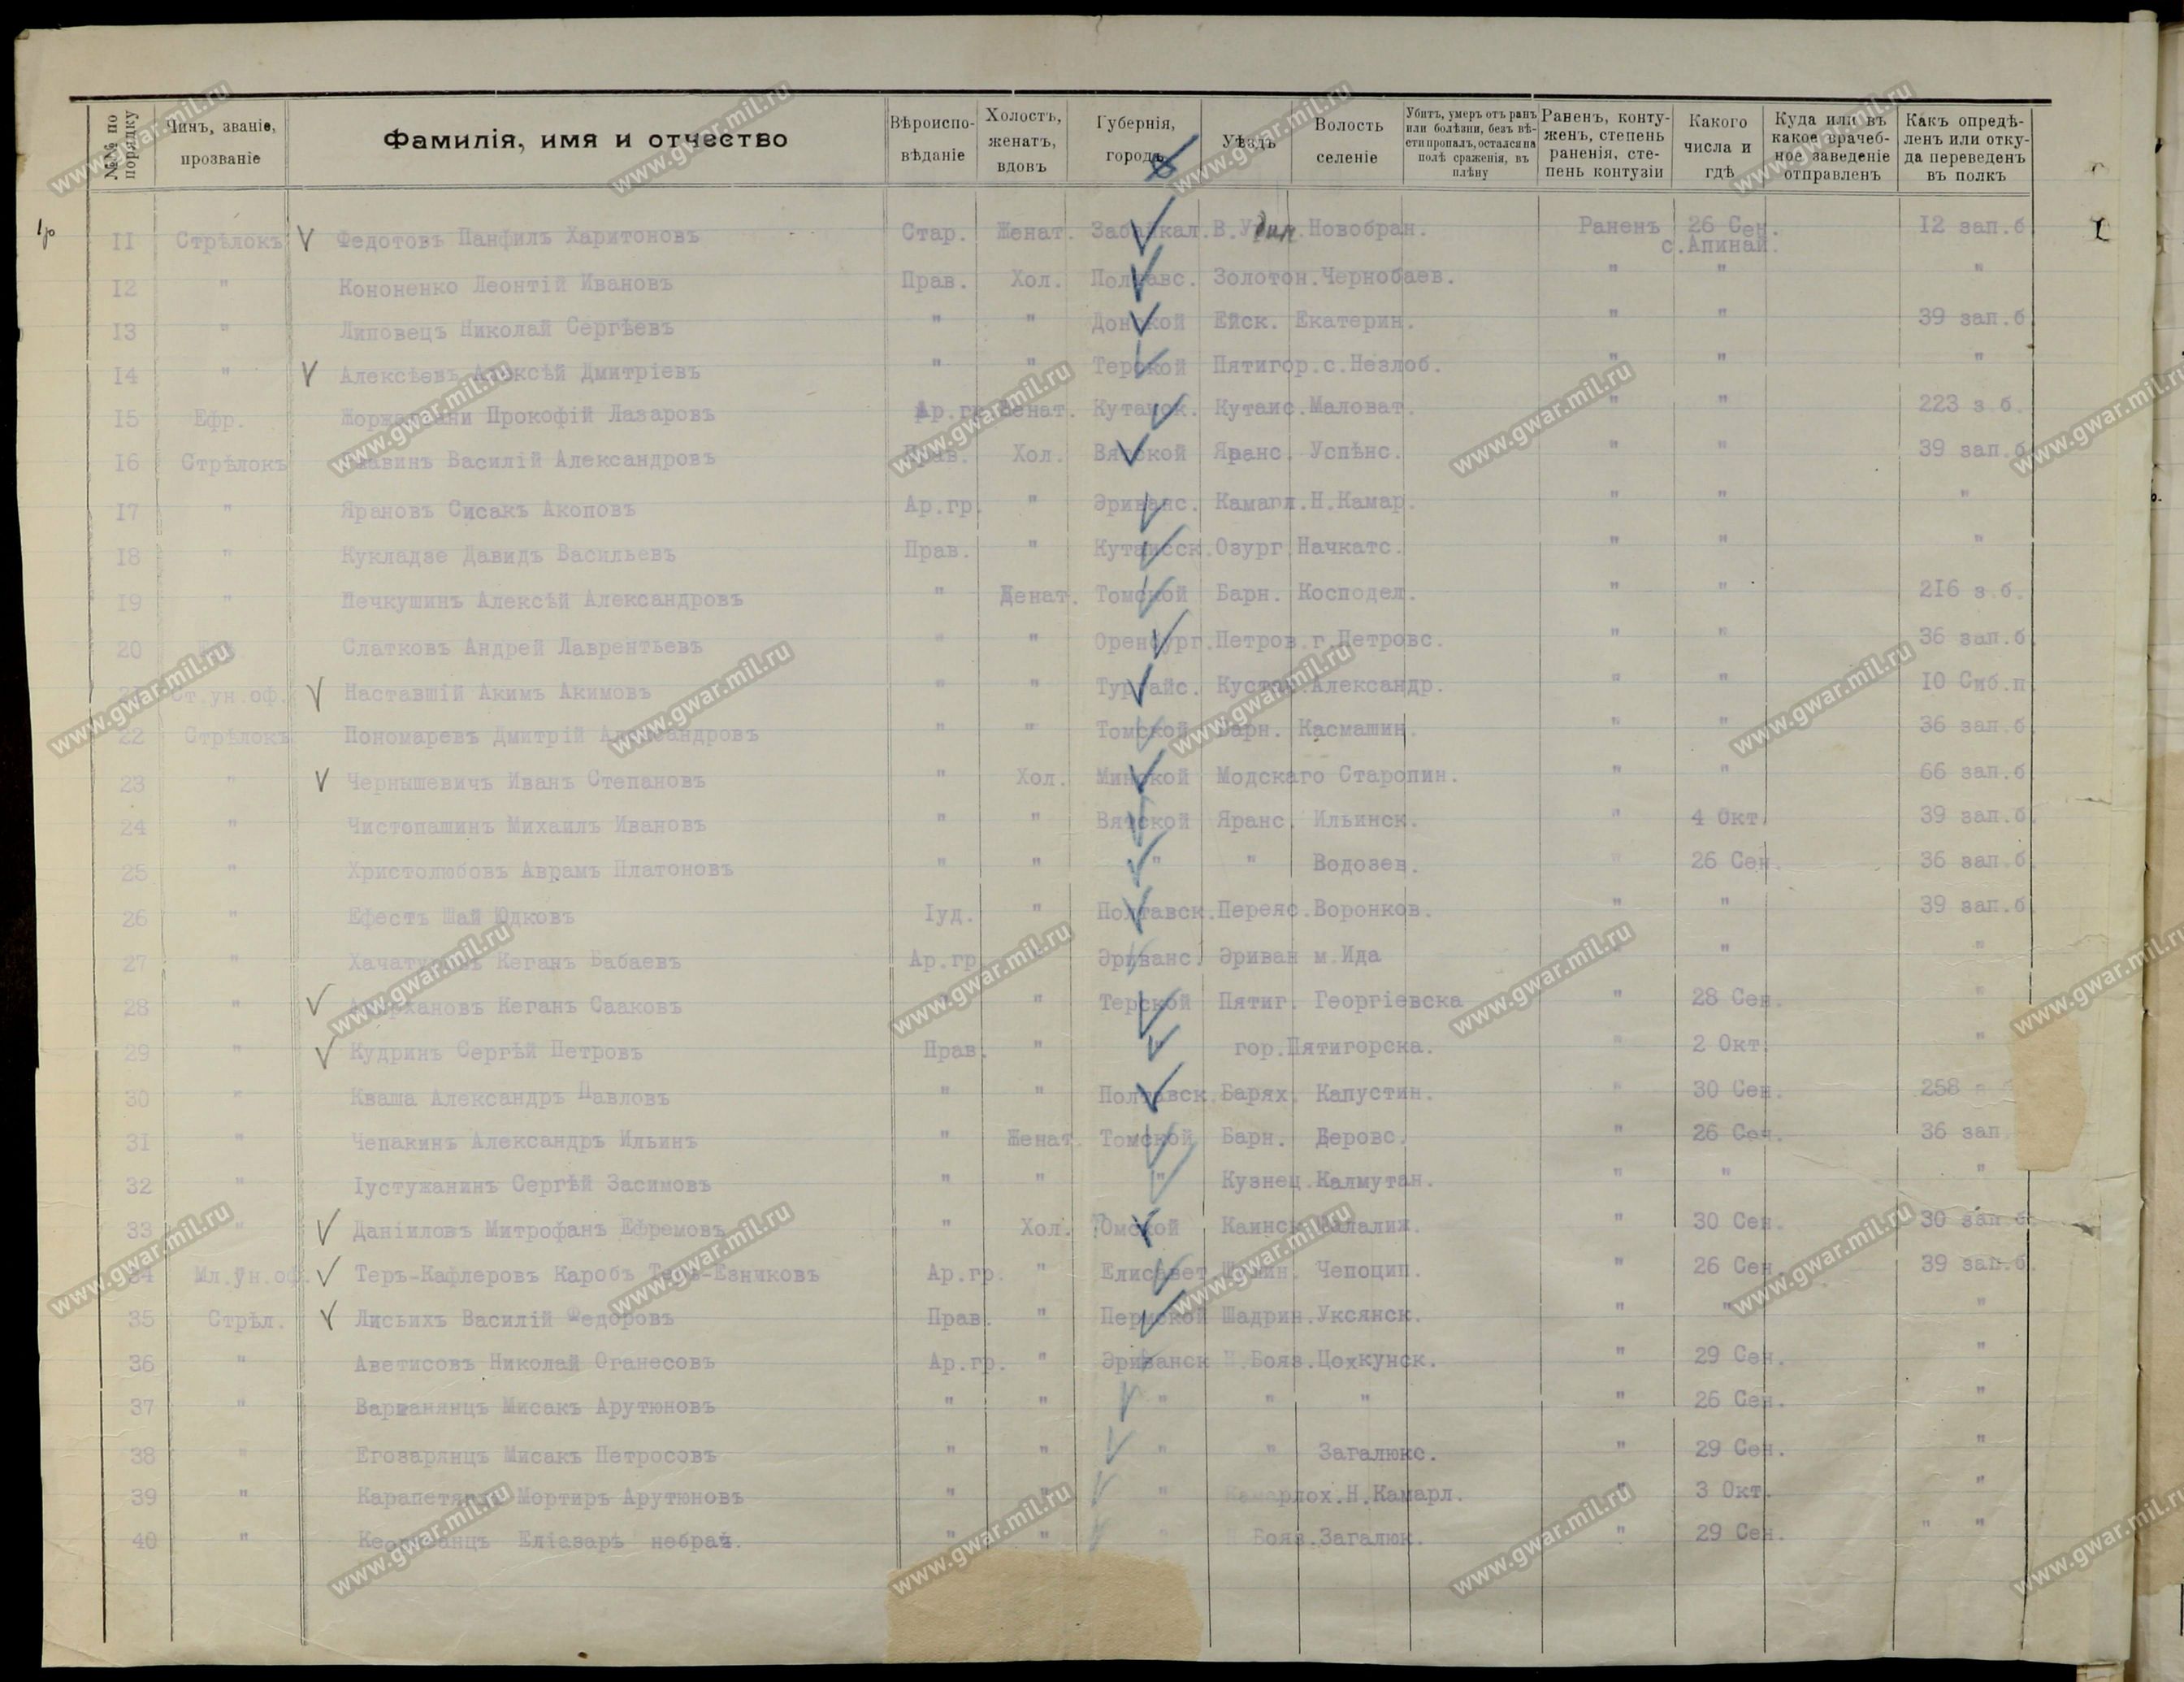 №№ по порядку | Чинъ, званіе, прозваніе | Фамилія, имя и отчество | Вѣроисповѣданіе | Холостъ, женатъ, вдовъ | Губернія, городъ | Уѣздъ | Волость селеніе | Убитъ, умеръ отъ ранъ или болѣзни, безъ вѣсти пропалъ, остался на полѣ сраженія, въ плѣну | Раненъ, контуженъ, степень раненія, степень контузіи | Какого числа и гдѣ | Куда или въ какое врачебное заведеніе отправленъ | Какъ опредѣленъ или откуда переведенъ въ полкъ
11 Стрѣлокъ Федотовъ Панфилъ Харитоновъ Стар. Женат. Забайкал. В.Удин. Новобран. Раненъ 26 Сен. с.Апинай. 12 зап.б
12 " Кононенко Леонтій Ивановъ Прав. Хол. Полтавс. Золотон. Чернобаев. " " "
13 " Липовецъ Николай Сергѣевъ " " Донской Ейск. Екатерин. " " 39 зап.б
14 " Алексѣевъ Алексѣй Дмитріевъ " " Терской Пятигор. с.Незлоб. " " "
15 Ефр. Прокофій Лазаровъ Ар.гр Женат. Кутаиск. Кутаис. Маловат. " " 223 з.б.
16 Стрѣлокъ Василій Александровъ Прав. Хол. Вятской Яранс. Успѣнс. " " 39 зап.б
17 " Ярановъ Сисакъ Акоповъ Ар.гр. " Эриванс. Камарл. Н.Камар. " " "
18 " Кукладзе Давидъ Васильевъ Прав. " Кутаисск. Озург. Начкатс. " " "
19 " Печкушинъ Алексѣй Александровъ " Женат. Томской Барн. Косподел. " " 216 з.б.
20 Слатковъ Андрей Лаврентьевъ " " Оренбург. Петров. г.Петровс. " " 36 зап.б
21 Ст.ун.оф. Наставшій Акимъ Акимовъ " " Тургайс. Кустан. Александр. " " 10 Сиб.п
22 Стрѣлокъ Пономаревъ Дмитрій Александровъ " " Томской Барн. Касмашин. " " 36 зап.б
23 " Чернышевичъ Иванъ Степановъ " Хол. Минской Модскаго Старопин. " " 66 зап.б
24 " Чистопашинъ Михаилъ Ивановъ " " Вятской Яранс. Ильинск. " 4 Окт. 39 зап.б.
25 " Христолюбовъ Аврамъ Платоновъ " " " " Водозев. " 26 Сен. 36 зап.б.
26 " Ефестъ Шай Юдковъ Іуд. " Полтавск. Переяс. Воронков. " " 39 зап.б
27 " Кеганъ Бабаевъ Ар.гр. " Эриванс. Эриван м.Ида " " "
28 " Кеганъ Сааковъ " " Терской Пятиг. Георгіевска " 28 Сен. "
29 " Кудринъ Сергѣй Петровъ Прав. " " гор.Пятигорска. " 2 Окт. "
30 " Кваша Александръ Павловъ " " Полтавск. Барях. Капустин. " 30 Сен. 258
31 " Чепакинъ Александръ Ильинъ " Женат. Томской Барн. Беровс. " 26 Сен. 36 зап.
32 " Іустужанинъ Сергѣй Засимовъ " " " Кузнец. Калмутан. " " "
33 " Даніиловъ Митрофанъ Ефремовъ " Хол. Томской Каинск. " 30 Сен. 30 зап.б.
34 Мл.ун.оф. Теръ-Кафлеровъ Каробъ Теръ-Езниковъ Ар.гр. " Елисавет. Чепоцип. " 26 Сен. 39 зап.б.
35 Стрѣл. Лисьихъ Василій Федоровъ Прав. " Пермской Шадрин. Уксянск. " " "
36 " Аветисовъ Николай Оганесовъ Ар.гр. " Эриванск Н.Бояз. Цохкунск. " 29 Сен. "
37 " Варжанянцъ Мисакъ Арутюновъ " " " " " " 26 Сен. "
38 " Егозарянцъ Мисакъ Петросовъ " " " " Загалюкс. " 29 Сен. "
39 " Карапетянцъ Мортиръ Арутюновъ " " " Камарлох. Н.Камарл. " 3 Окт. "
40 " Еліазаръ небрач. " " " Н Бояз. Загалюк. " 29 Сен. " "
www.gwar.mil.ru